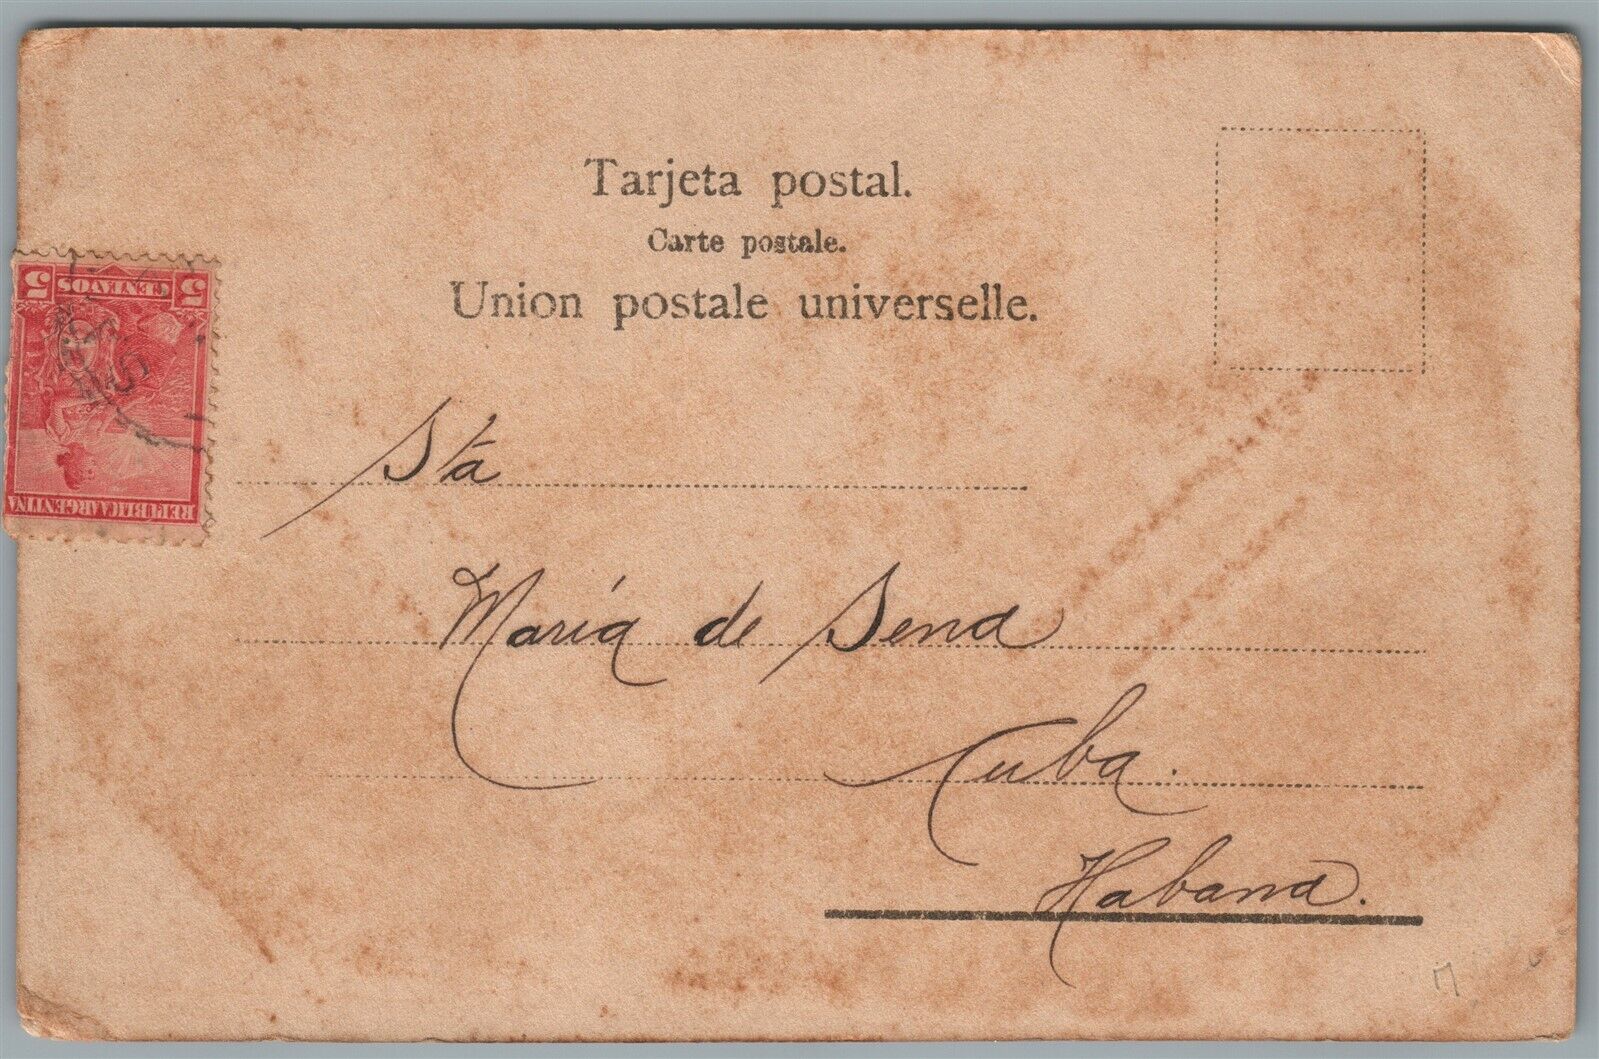 Tarjeta postal.
Carte postale.
Union postale universelle.
5 CENTAVOS 5
REPÚBLICA ARGENTINA
Sta
María de Sena
Cuba.
Habana.